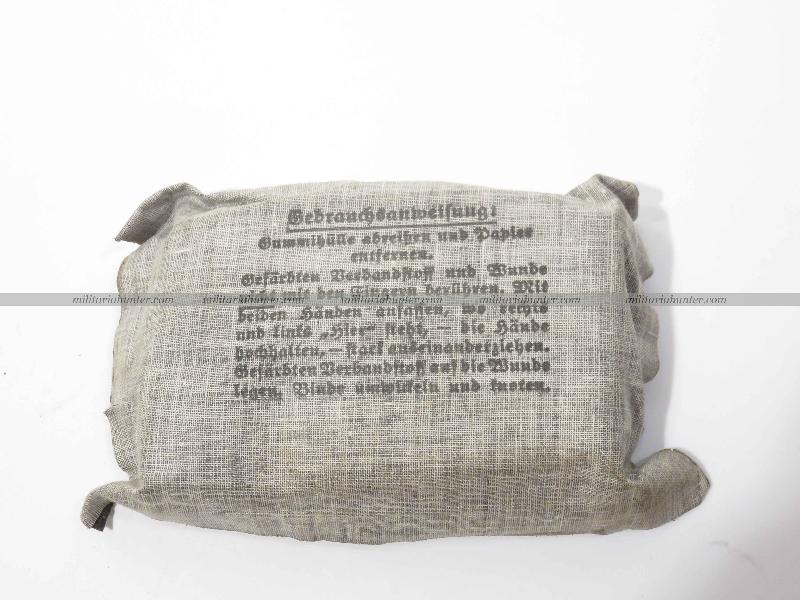 Gebrauchsanweisung:
Gummihülle abreißen und Papier
entfernen.
Gefärbten Verbandstoff und Wunde
militariahunter.com militariahunter.com militariahunter.com militariahunter.com militariahunter.com militariahunter.com
mit den Fingern berühren. Mit
beiden Händen anfassen, wo rechts
und links „Hier“ steht, — die Hände
hochhalten, — stark auseinanderziehen.
Gefärbten Verbandstoff auf die Wunde
legen, Binde umwickeln und knoten.